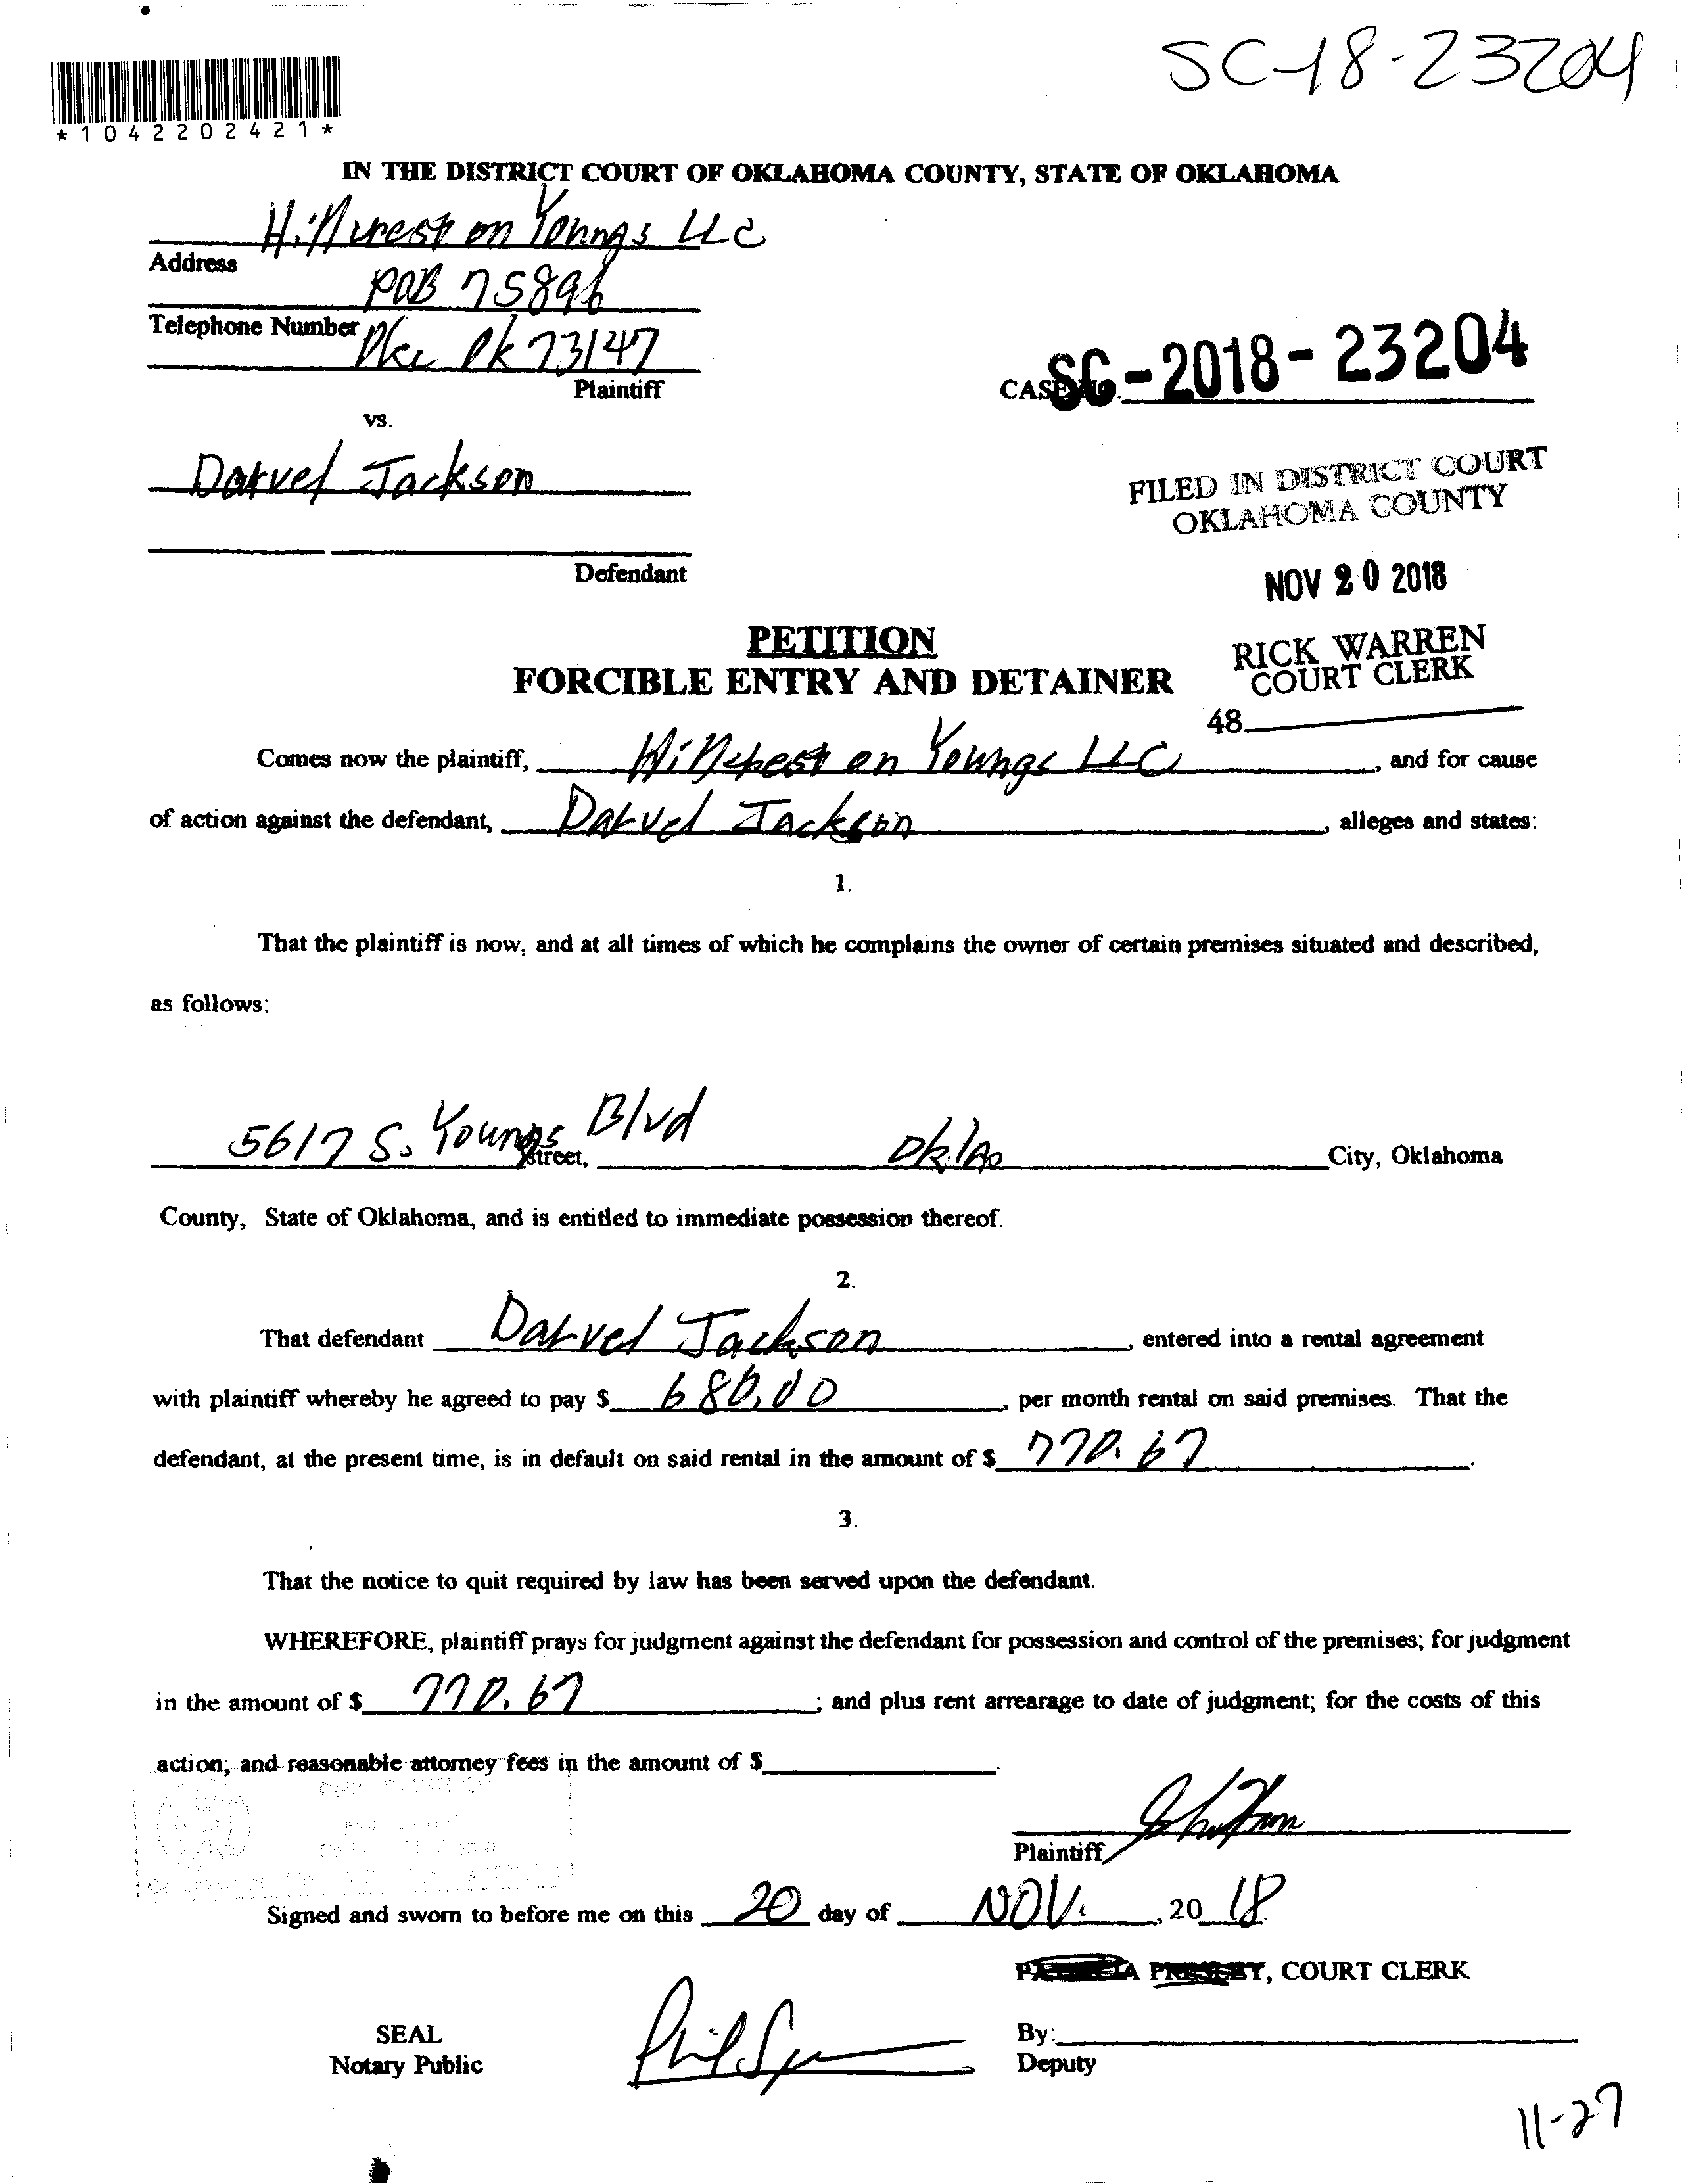 SC-18-23204
*1042202421*
IN THE DISTRICT COURT OF OKLAHOMA COUNTY, STATE OF OKLAHOMA
Hillcrest on Youngs LLC
Address
POB 75896
Telephone Number
Okc Ok 73147
Plaintiff
CASE NO. SC-2018-23204
vs.
Darvel Jackson
FILED IN DISTRICT COURT
OKLAHOMA COUNTY
Defendant
NOV 20 2018
PETITION
RICK WARREN
COURT CLERK
FORCIBLE ENTRY AND DETAINER
48
Comes now the plaintiff, Hillcrest on Youngs LLC, and for cause
of action against the defendant, Darvel Jackson, alleges and states:
1.
That the plaintiff is now, and at all times of which he complains the owner of certain premises situated and described,
as follows:
5617 S. Youngs Blvd Street, Okla City, Oklahoma
County, State of Oklahoma, and is entitled to immediate possession thereof.
2.
That defendant Darvel Jackson, entered into a rental agreement
with plaintiff whereby he agreed to pay $ 680.00, per month rental on said premises. That the
defendant, at the present time, is in default on said rental in the amount of $ 770.67.
3.
That the notice to quit required by law has been served upon the defendant.
WHEREFORE, plaintiff prays for judgment against the defendant for possession and control of the premises; for judgment
in the amount of $ 770.67; and plus rent arrearage to date of judgment; for the costs of this
action; and reasonable attorney fees in the amount of $.
Plaintiff
Signed and sworn to before me on this 20 day of NOV., 20 18.
PATRICIA PRESLEY, COURT CLERK
SEAL
Notary Public
By:
Deputy
11-27